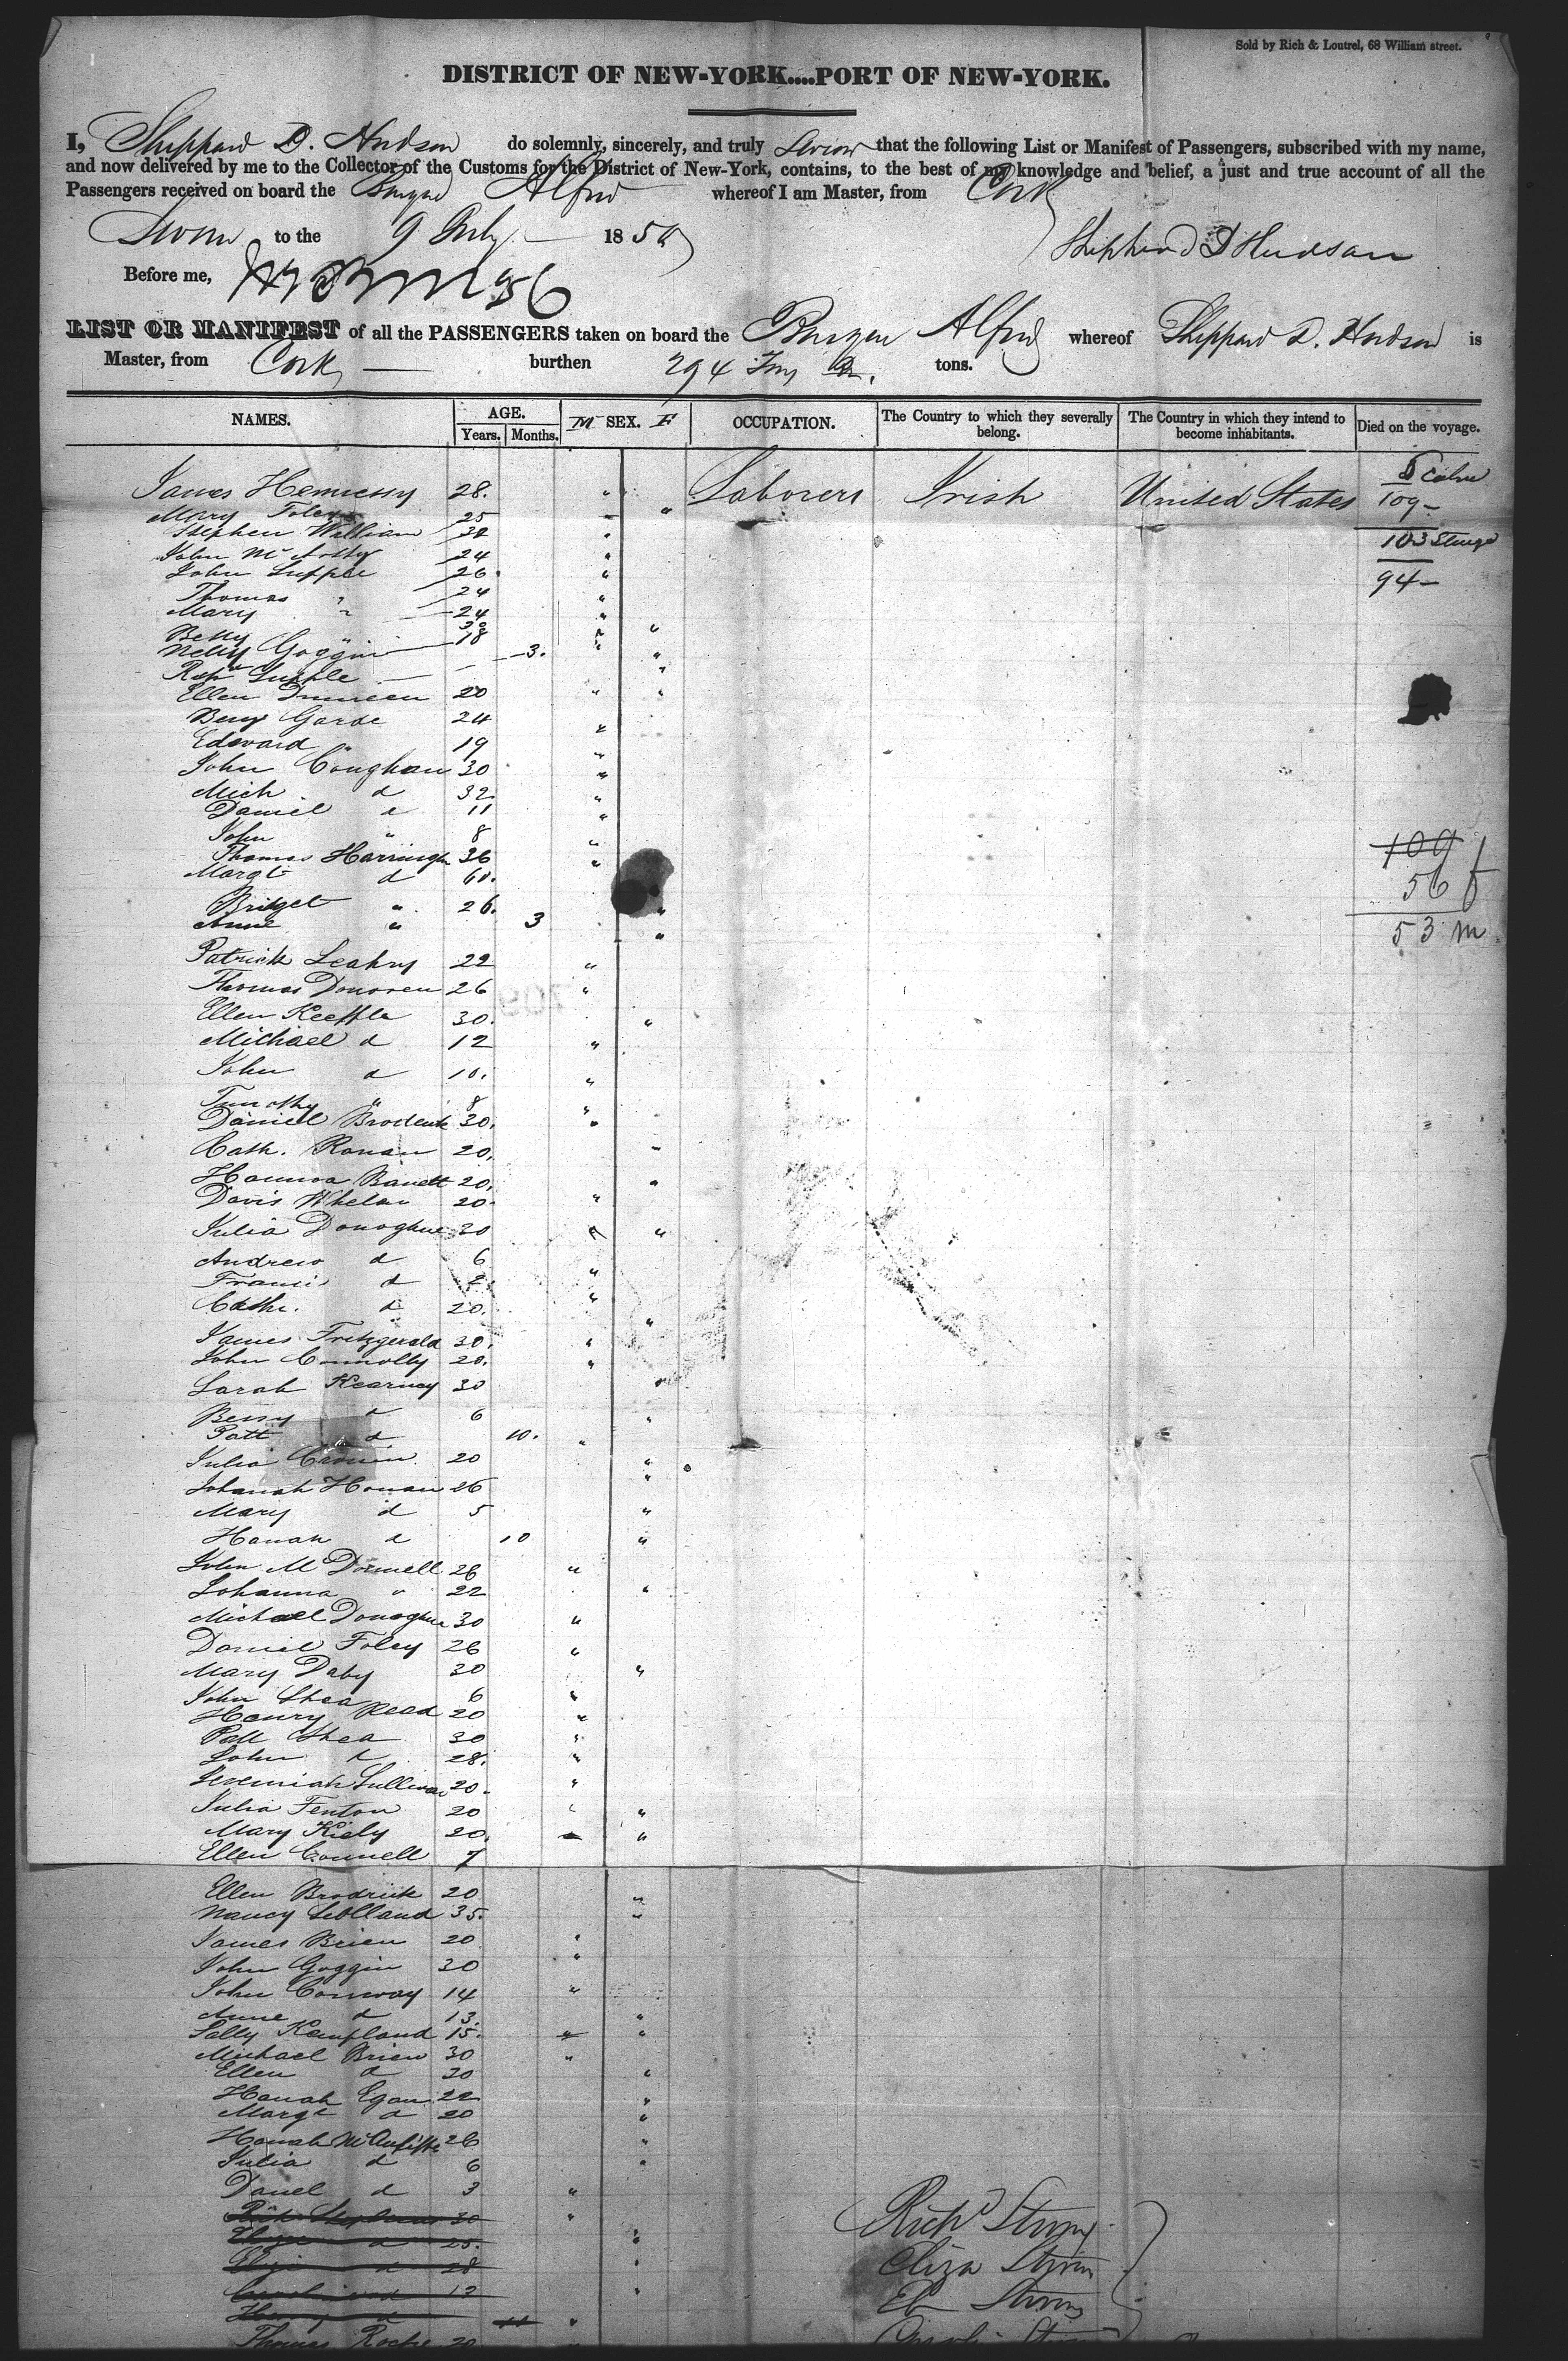 Sold by Rich & Loutrel, 68 William street.
DISTRICT OF NEW-YORK....PORT OF NEW-YORK.
I, Sheppard D. Hudson do solemnly, sincerely, and truly swear that the following List or Manifest of Passengers, subscribed with my name,
and now delivered by me to the Collector of the Customs for the District of New-York, contains, to the best of my knowledge and belief, a just and true account of all the
Passengers received on board the Alfred whereof I am Master, from Cork
Sworn to the 9 July 185
Shephard D Hudson
Before me,
LIST OR MANIFEST of all the PASSENGERS taken on board the Alfred whereof Sheppard D. Hudson is
Master, from Cork burthen 294 tons.
NAMES. AGE. Years. Months. M SEX. F OCCUPATION. The Country to which they severally belong. The Country in which they intend to become inhabitants. Died on the voyage.
James Hennessy 28. " Laborers Irish United States 109-
Mary Foley 25 "
Stephen William "
103
John 24 "
94-
John Supple 26 "
Thomas " 24 "
Mary " 24
Betsy
Nelly Goggin 18 "
3.
Supple
Ellen 20 "
Garde 24 "
Edward " 19 "
John Coughan 30 "
Mich d 32 "
Daniel d 11 "
John " 8 "
Thomas Harrington 36 "
109
Margt d 60.
56 f
Bridget " 26. "
Anne " 3 "
53 m
Patrick Leahy 22 "
Thomas Donoven 26 "
Ellen Keeffe 30. "
Michael d 12 "
John d 10. "
Timothy " 8 "
Daniel Broderick 30. "
Cath. Ronan 20. "
Hanna Barrett 20. "
Davis Whelan 20. "
Julia Donoghue 30 "
Andrew d 6 "
Francis d 2 "
Cathe. d 20. "
James Fritzgerald 30. "
John Connolly 20. "
Sarah Kearney 30 "
Bessy d 6 "
Patt d 10. "
Julia Cronin 20 "
Johanah Honan 26 "
Mary d 5 "
Hanah d 10 "
John McDonnell 26 "
Johanna " 22 "
Michael Donoghue 30 "
Daniel Foley 26 "
Mary Daby 30 "
John Shea 6 "
Henry Read 20 "
Patt Shea 30 "
John d 28. "
Jeremiah Sullivan 20. "
Julia Fenton 20 "
Mary Kiely 20. "
Ellen Connell 7
Ellen Brodrick 20 "
Nancy Holland 35. "
James Brien 20 "
John Goggin 30 "
John Conway 14 "
Anne d 13. "
Sally Kempland 15. "
Michael Brien 30 "
Ellen d 30 "
Hanah Egan 22 "
Margt d 20 "
Hanah 26 "
Julia d 6 "
Daniel d 3 "
30 "
Richd
d 25. "
Eliza
d 28 "
12 "
"
Thomas Roche 20